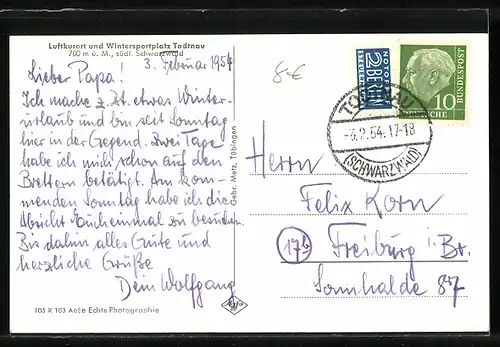 Luftkurort und Wintersportplatz Todtnau
700 m ü. M., südl. Schwarzwald
3. Februar 1954
Lieber Papa!
Ich mache z. Zt. etwas Winter-
urlaub und bin seit Sonntag
hier in der Gegend. Zwei Tage
habe ich mich schon auf den
Brettern betätigt. Am kom-
menden Sonntag habe ich die
Absicht Euch einmal zu besuchen.
Bis dahin alles Gute und
herzliche Grüße
Dein Wolfgang
105 R 103 AeSe Echte Photographie
Gebr. Metz, Tübingen
8-€
NOTOPFER
2 BERLIN
STEUERMARKE
10
DEUTSCHE
BUNDESPOST
TODTNAU
-3.2.54.17-18
(SCHWARZWALD)
Herrn
Felix Korn
17b Freiburg i. Br.
Sonnhalde 87